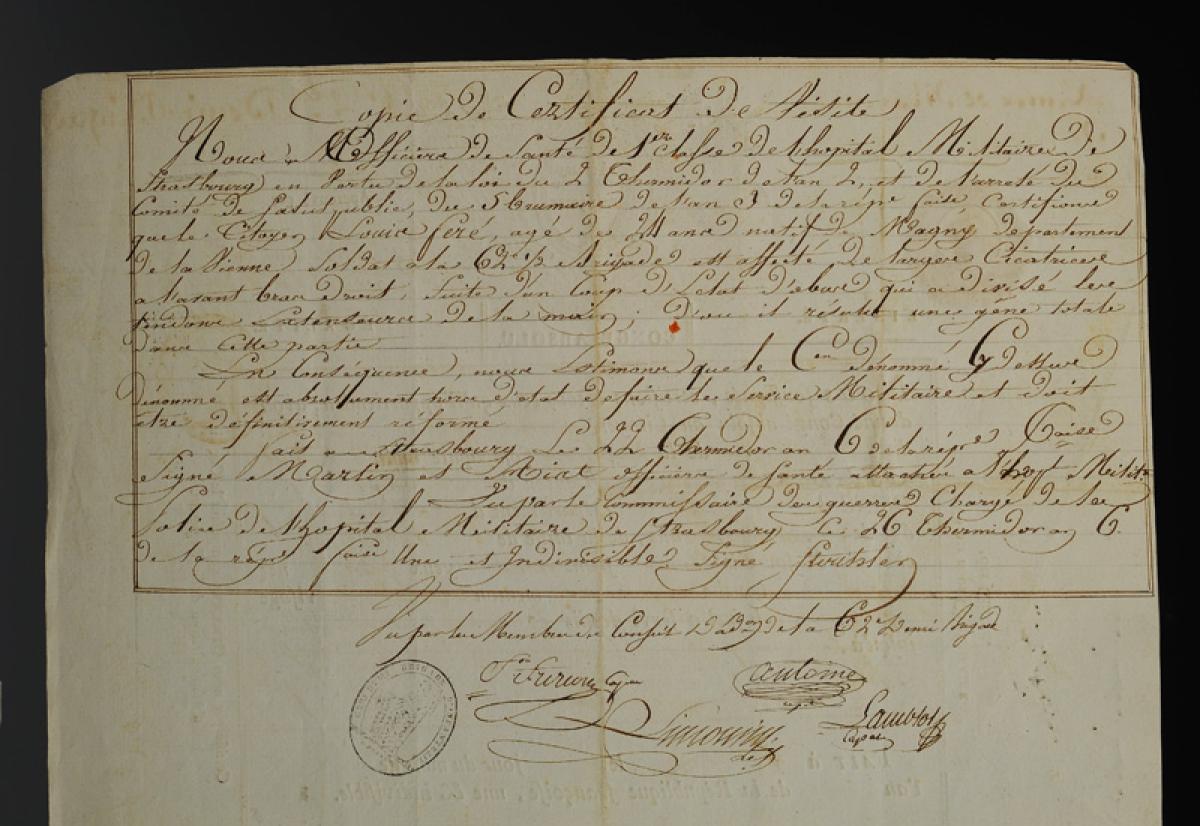 Copie de Certificat de Visite
Nous Officiers de Santé de 1ere Classe de L'hopital Militaire de
Strasbourg en Vertu de la loi du 2 Thermidor de l'an 2, et de L'arreté du
Comité de Salut public, du 5 brumaire de l'an 3 de la rép.e faise, certifions
que le Citoyen Louis feré, agé de ans natif de Magny département
de la Vienne, Soldat a la 62e 1/2 Brigade est affecté De larges Cicatrices
a L'avant bras droit, Suite d'un Coup d'Eclat d'obus qui a divisé les
tindons Extenseurs de la main, d'ou il résulte une gêne totale
dans cette partie
En Consequence, nous Estimons que le Cen dénommé Cy dessus
dénommé est absollument hors d'etat de faire le Service Militaire et doit
etre définitivement réformé
fait a Strasbourg Le 22 Thermidor an 6 de la rép.e fçaise
Signé Martin et officiers de Santé attachés a L'hopt Milite
Vu par le Commissaire des guerres Chargé de la
Police de L'hopital Militaire de Strasbourg le 26 Thermidor an 6
de la rép. faise Une et Indivisible, Signé
Vu par les Membres du Conseil D'adon de la 62e Demi Brigade
antoine
Simonin
Lambtot